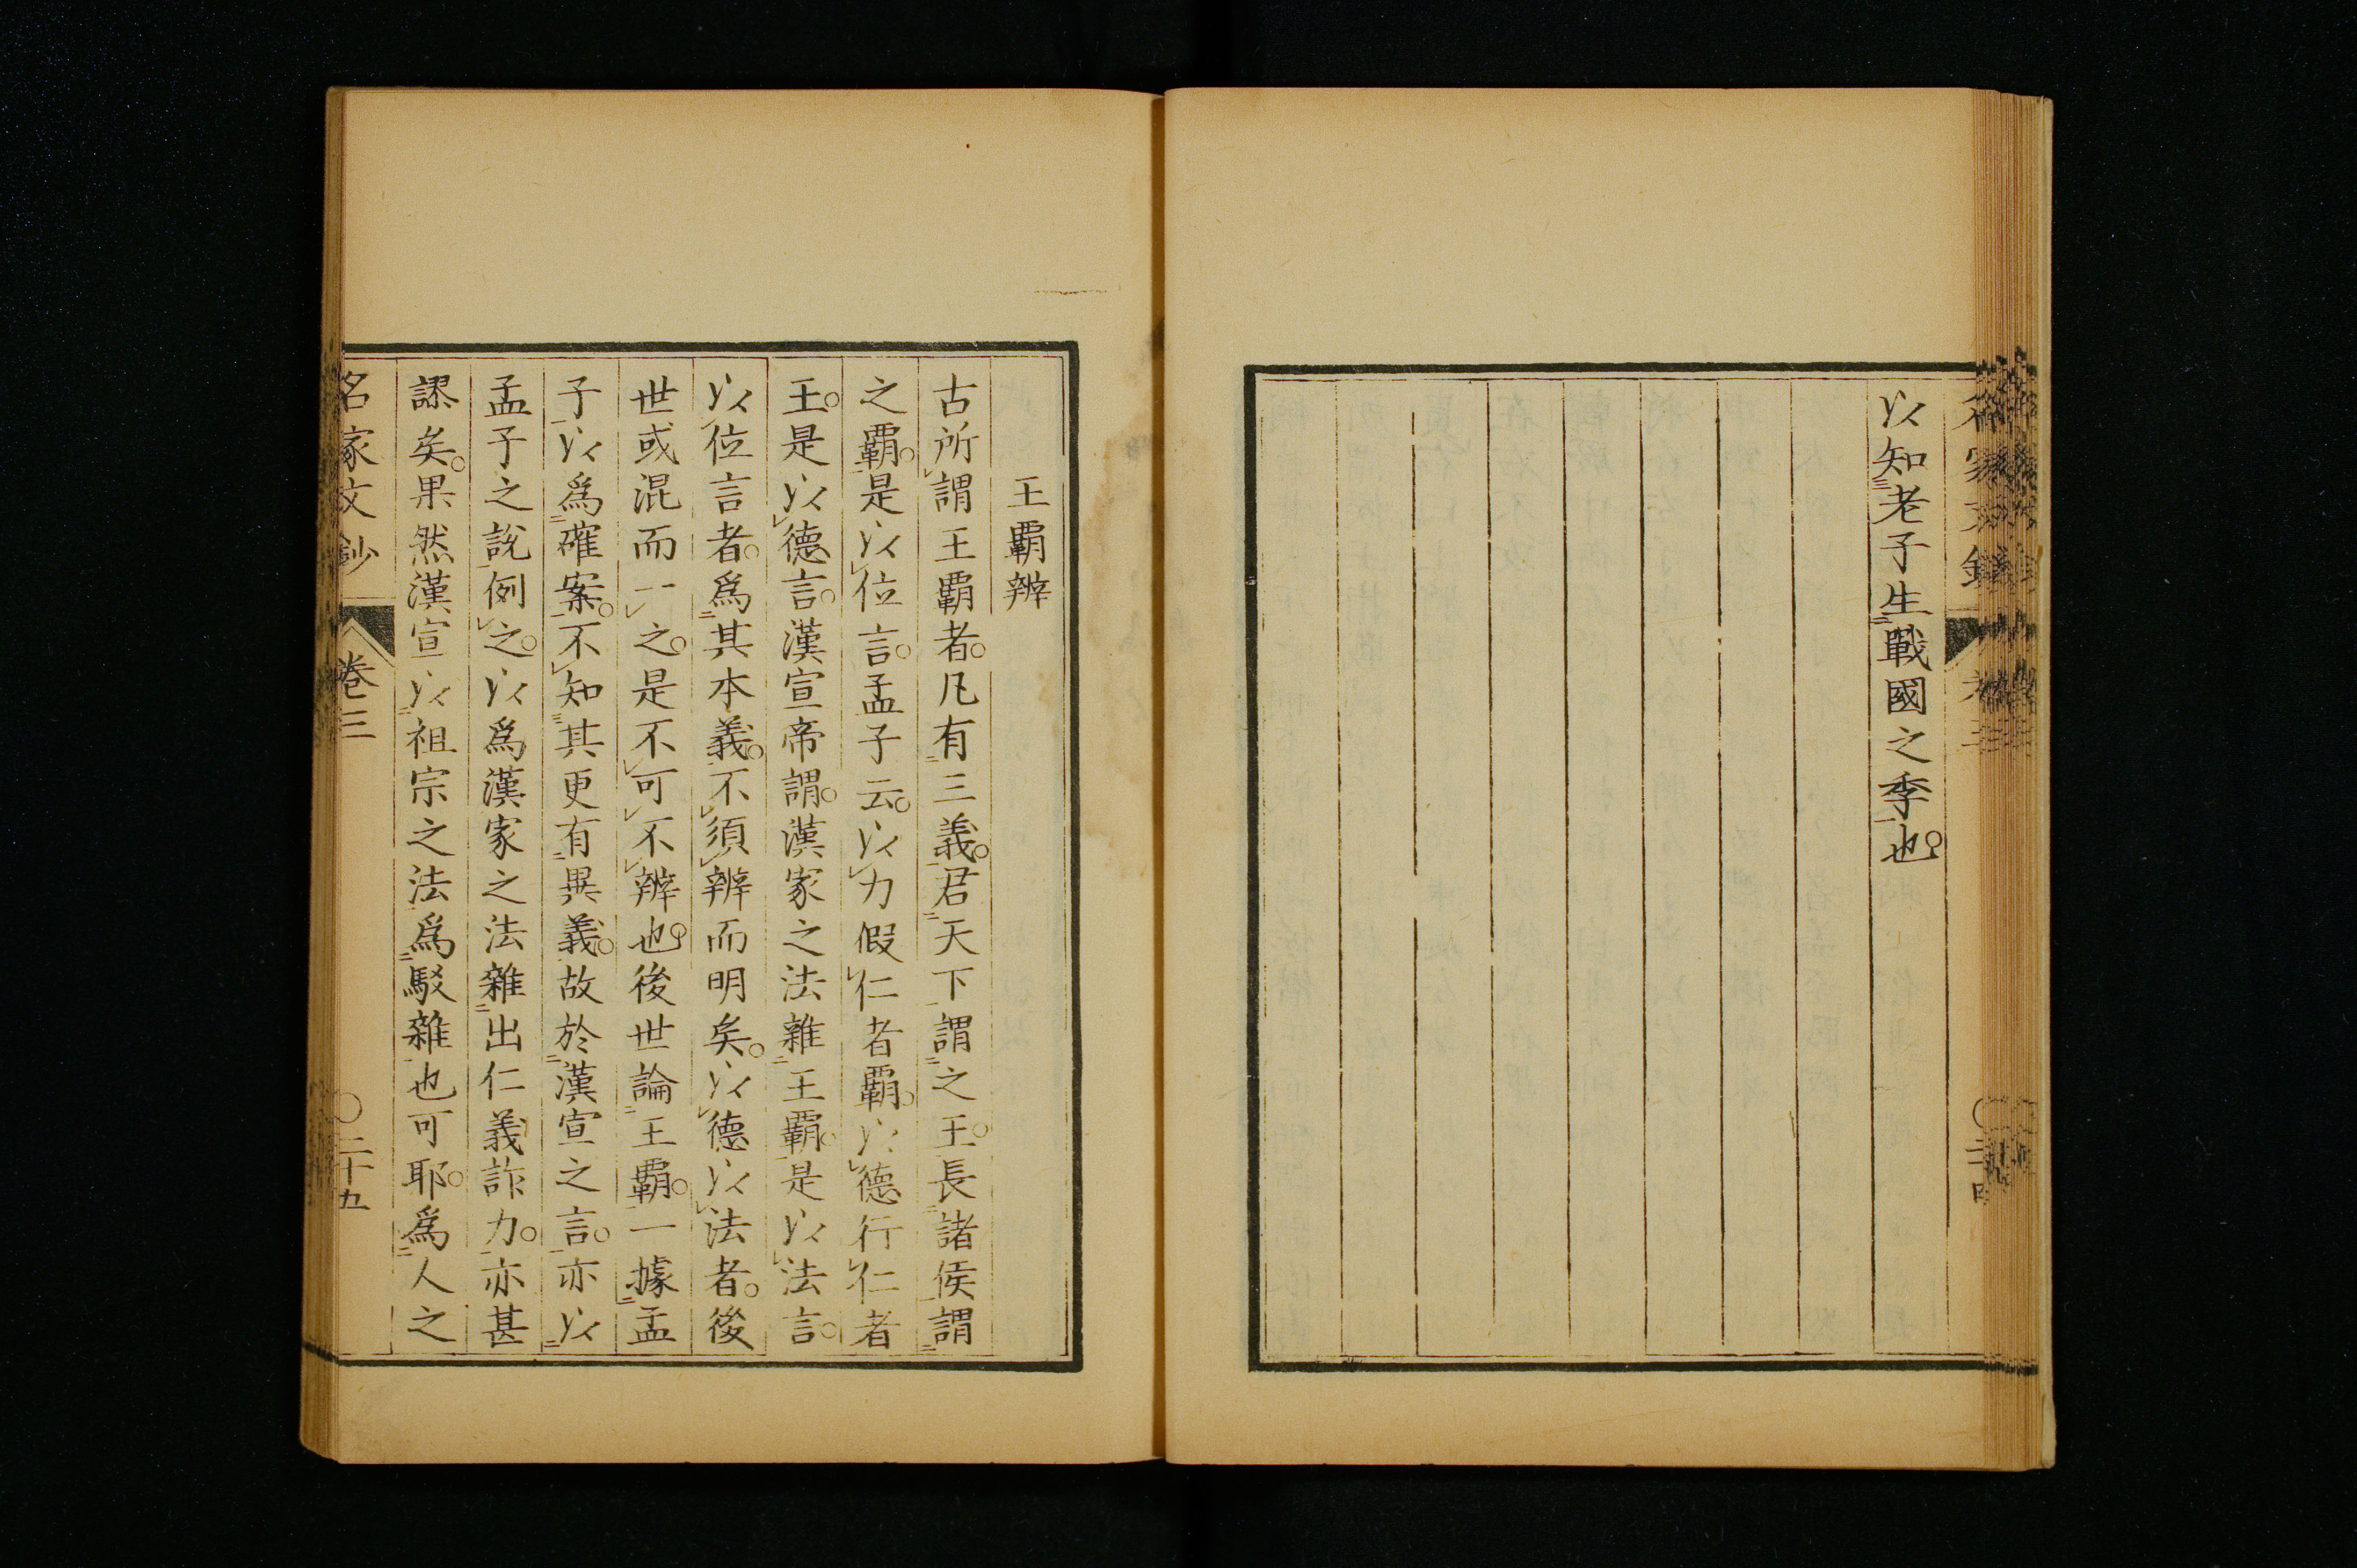 以知老子生戰國之季也。
王霸辨
古所謂王霸者。凡有三義。君天下謂之王。長諸侯謂
之霸。是以位言。孟子云。以力假仁者霸。以德行仁者
王。是以德言。漢宣帝謂。漢家之法雜王霸。是以法言。
以位言者。爲其本義。不須辨而明矣。以德以法者。後
世或混而一之。是不可不辨也。後世論王霸。一據孟
子以爲確案。不知其更有異義。故於漢宣之言。亦以
孟子之説例之。以爲漢家之法雜出仁義詐力。亦甚
謬矣。果然漢宣以祖宗之法爲駁雜也可耶。爲人之
名家文鈔 卷三 〇二十五